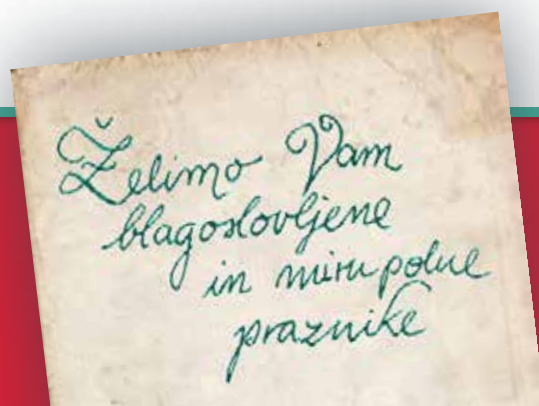 Želimo Vam
blagoslovljene
in miru polne
praznike